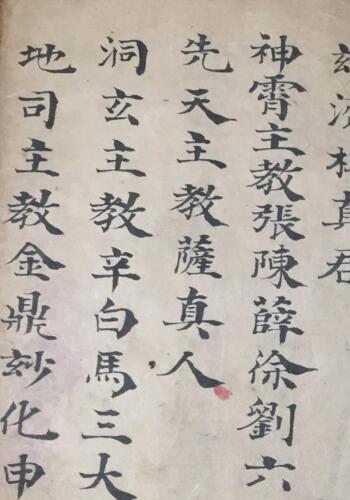 真君
神霄主教張陳薛徐劉六
先天主教薩真人
洞玄主教辛白馬三大
地司主教金鼎玅化申